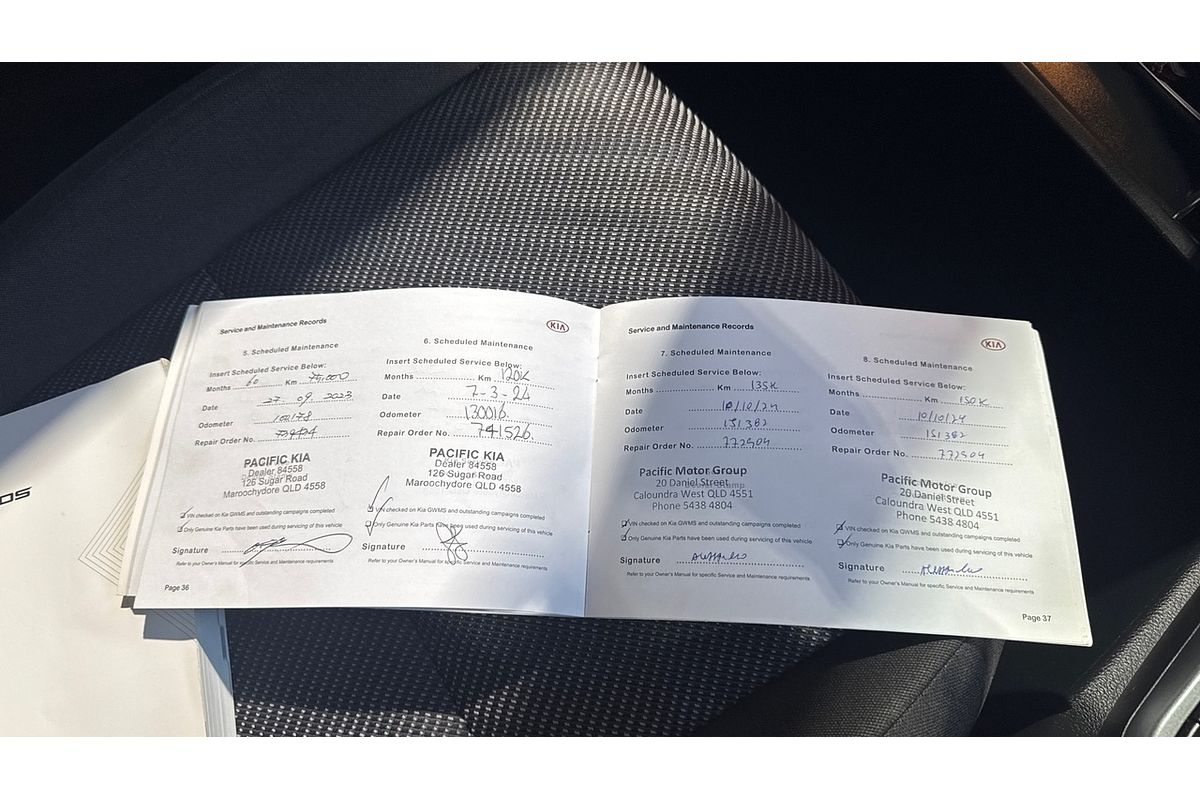 OS
Service and Maintenance Records
KIA
5. Scheduled Maintenance
Insert Scheduled Service Below:
Months 60 Km 75,000
Date 27. 09. 2023
Odometer 100178
Repair Order No.
PACIFIC KIA
Dealer 84558
126 Sugar Road
Maroochydore QLD 4558
VIN checked on Kia GWMS and outstanding campaigns completed
Only Genuine Kia Parts have been used during servicing of this vehicle
Signature
Refer to your Owner's Manual for specific Service and Maintenance requirements
Page 36
6. Scheduled Maintenance
Insert Scheduled Service Below:
Months Km 120K
Date 7-3-24
Odometer 130016
Repair Order No. 741526
PACIFIC KIA
Dealer 84558
126 Sugar Road
Maroochydore QLD 4558
VIN checked on Kia GWMS and outstanding campaigns completed
Only Genuine Kia Parts have been used during servicing of this vehicle
Signature
Refer to your Owner's Manual for specific Service and Maintenance requirements
Service and Maintenance Records
KIA
7. Scheduled Maintenance
Insert Scheduled Service Below:
Months Km 135K
Date 10/10/24
Odometer 151382
Repair Order No. 772504
Pacific Motor Group
20 Daniel Street
Caloundra West QLD 4551
Phone 5438 4804
VIN checked on Kia GWMS and outstanding campaigns completed
Only Genuine Kia Parts have been used during servicing of this vehicle
Signature
Refer to your Owner's Manual for specific Service and Maintenance requirements
8. Scheduled Maintenance
Insert Scheduled Service Below:
Months Km 150K
Date 10/10/24
Odometer 151382
Repair Order No. 772504
Pacific Motor Group
20 Daniel Street
Caloundra West QLD 4551
Phone 5438 4804
VIN checked on Kia GWMS and outstanding campaigns completed
Only Genuine Kia Parts have been used during servicing of this vehicle
Signature
Refer to your Owner's Manual for specific Service and Maintenance requirements
Page 37